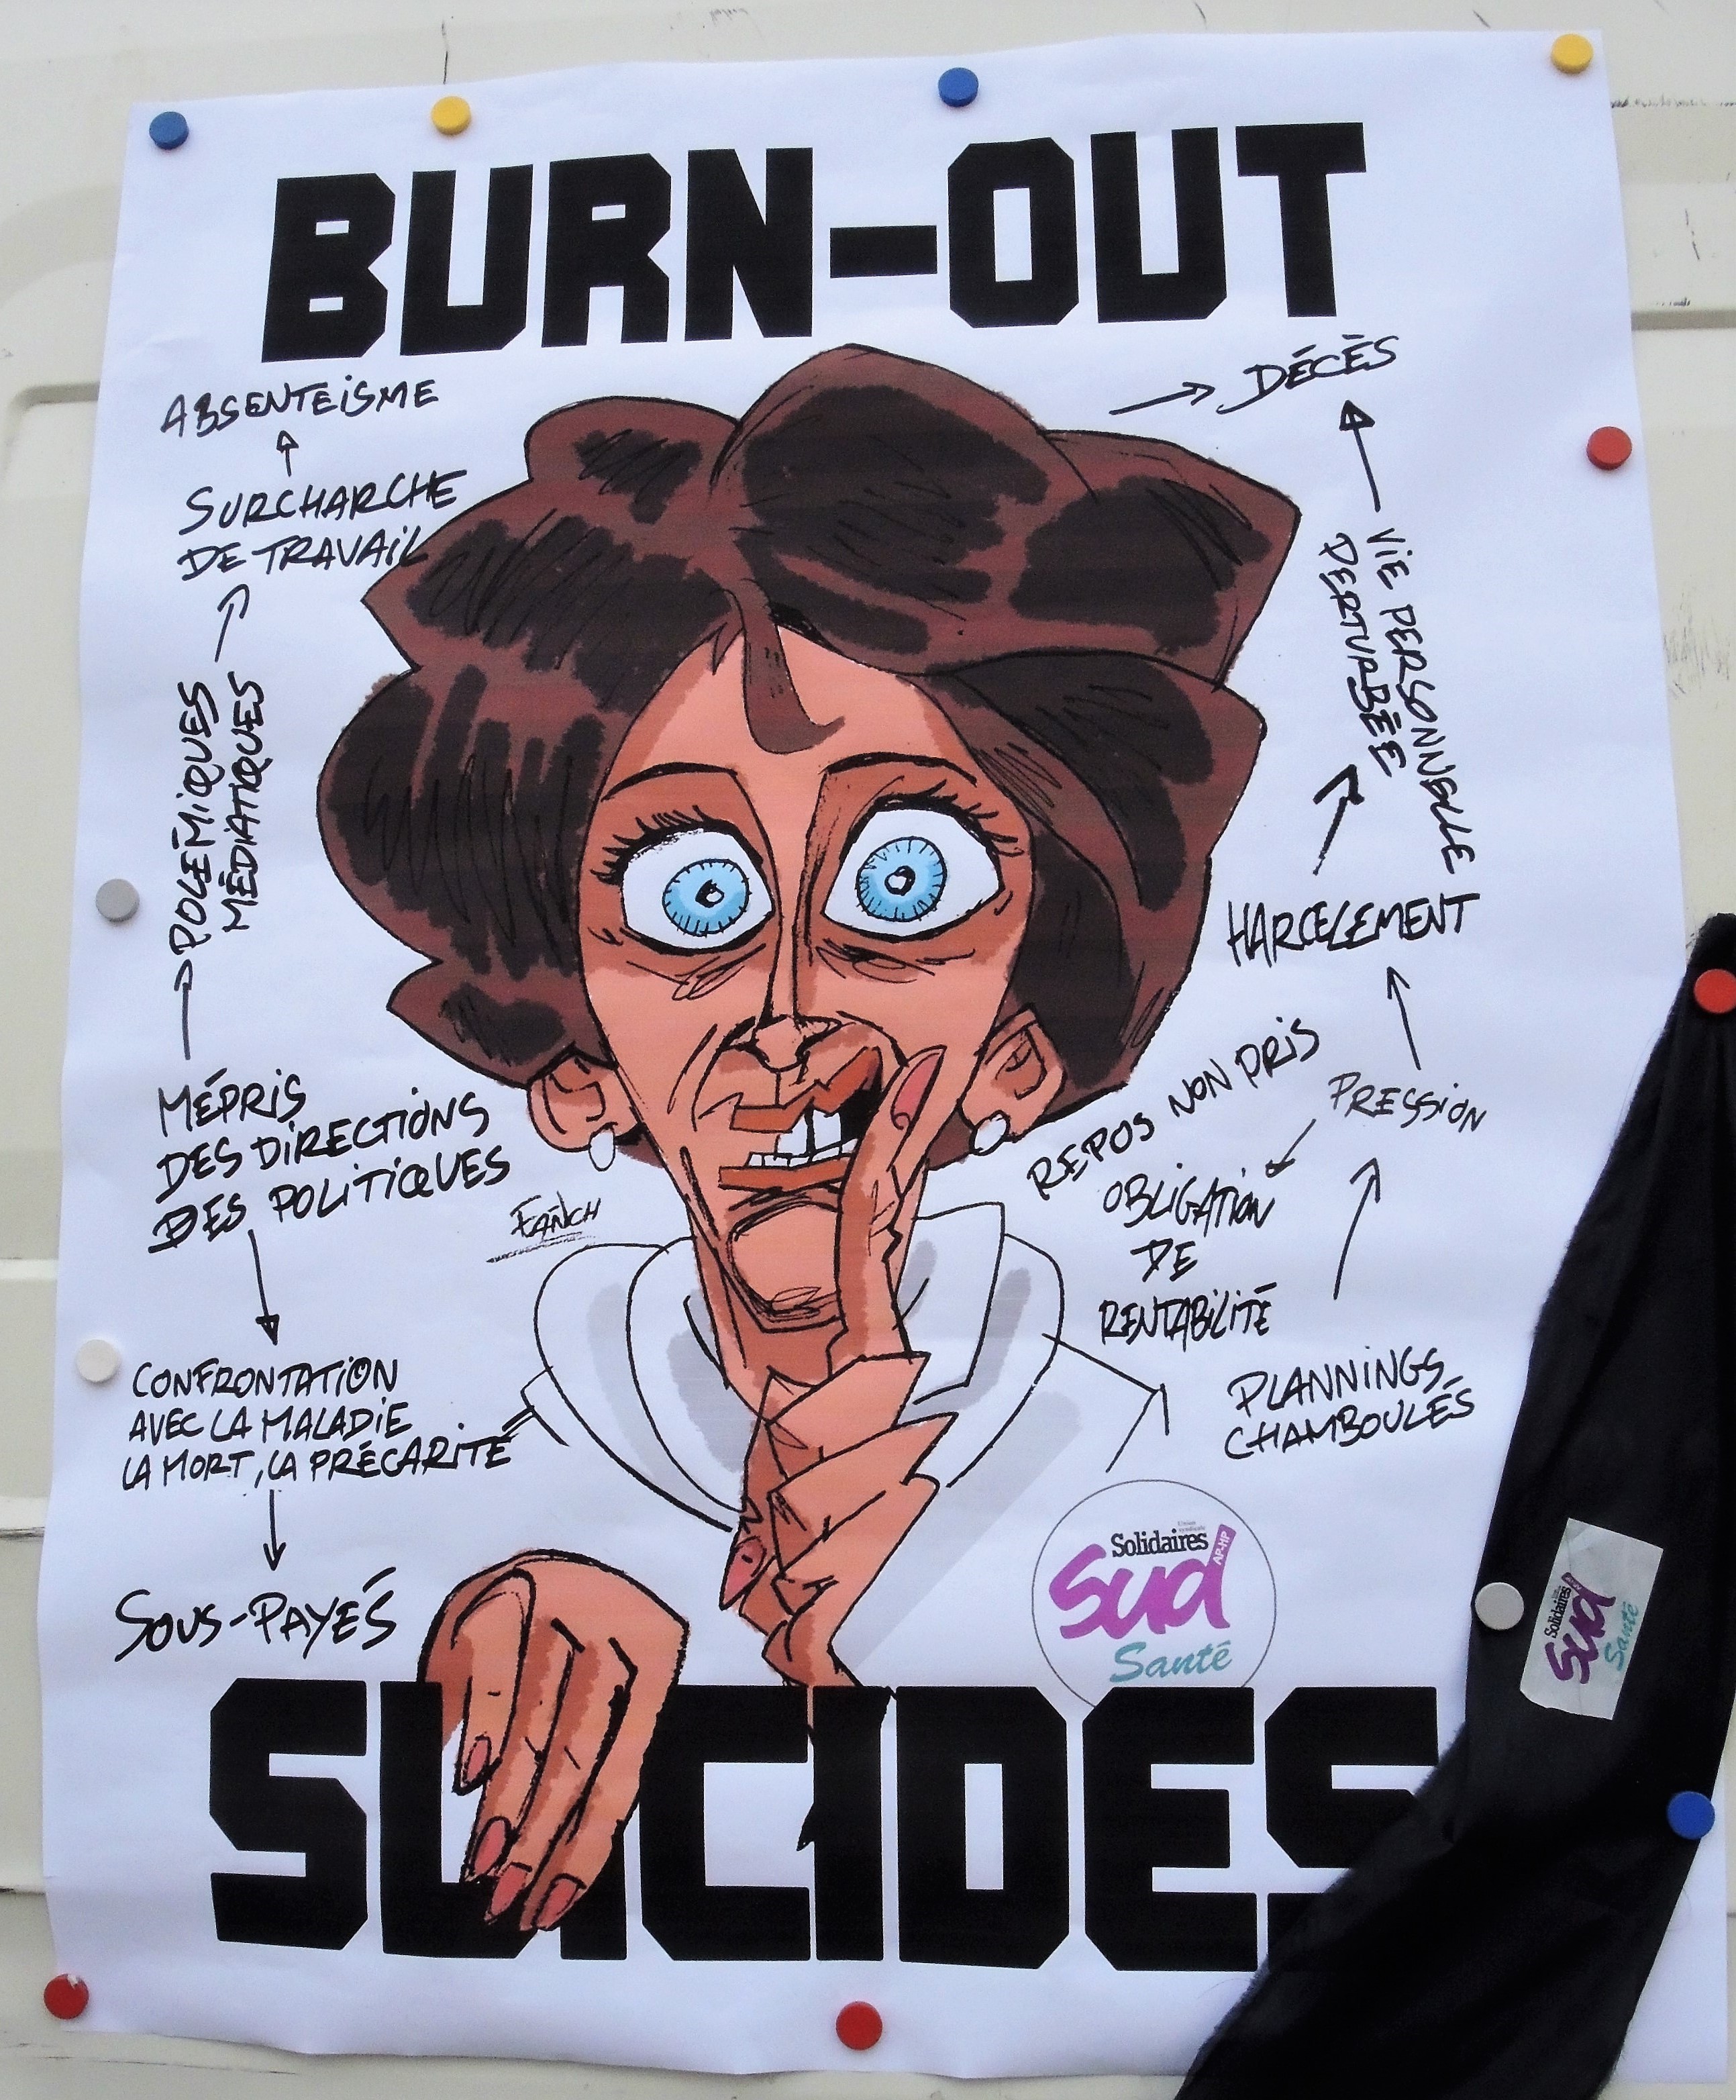 BURN-OUT
ABSENTEISME
SURCHARCHE
DE TRAVAIL
POLÉMIQUES
MÉDIATIQUES
MÉPRIS
DES DIRECTIONS
DES POLITIQUES
FAÑCH
CONFRONTATION
AVEC LA MALADIE
LA MORT, LA PRÉCARITÉ
SOUS-PAYÉS
DÉCÈS
VIE PERSONNELLE
PERTURBÉE
HARCELEMENT
PRESSION
REPOS NON PRIS
OBLIGATION
DE
RENTABILITÉ
PLANNINGS
CHAMBOULÉS
Union
syndicale
Solidaires
Sud
AP-HP
Santé
SUICIDES
Solidaires
Sud
Santé